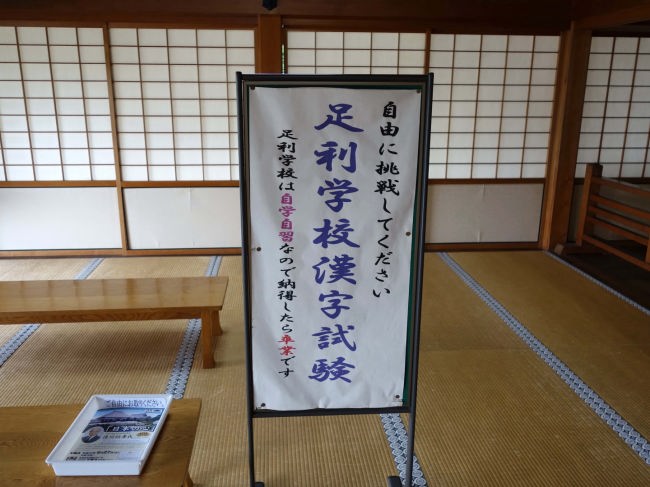 自由に挑戦してください
足利学校漢字試験
足利学校は自学自習なので納得したら卒業です
ご自由にお取りください。